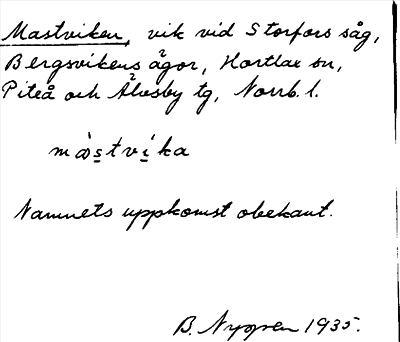 Mastviken, vik vid Storfors såg,
Bergsvikens ägor, Hortlax sn,
Piteå och Älvsby tg, Norrb. l.
mastvika
Namnets uppkomst obekant.
B. Nygren 1935.